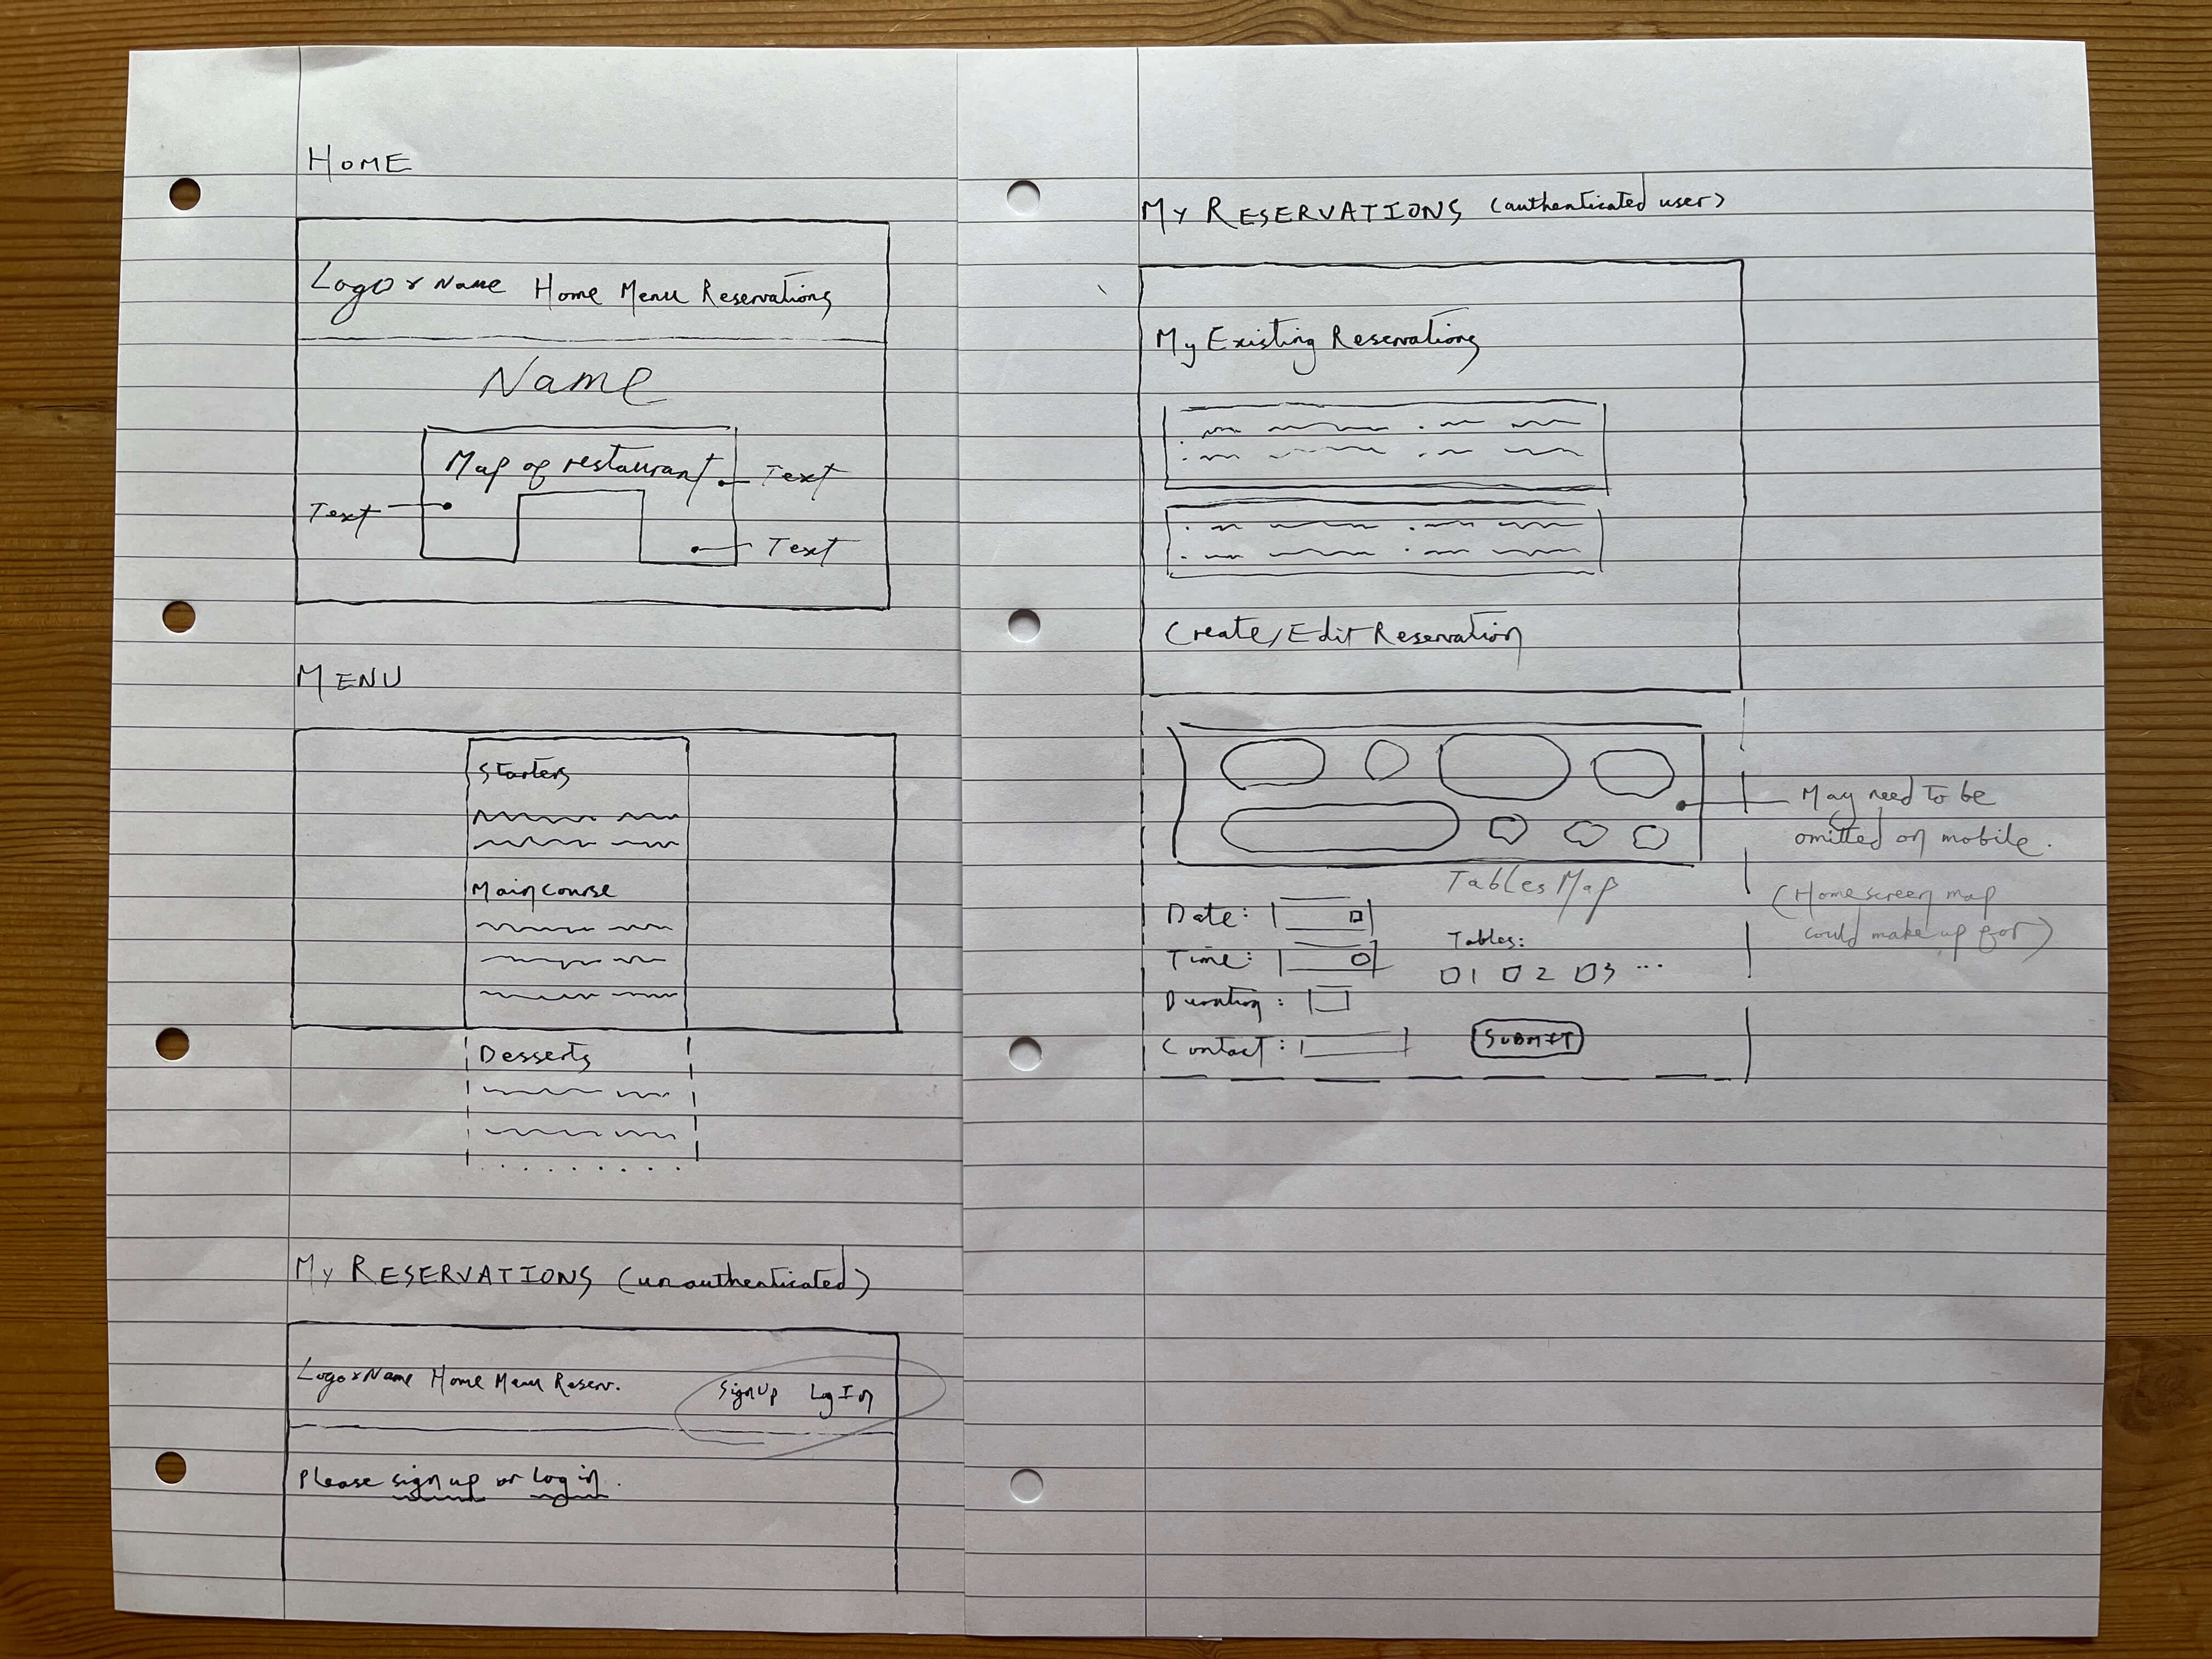 HOME
Logo & Name Home Menu Reservations
Name
Map of restaurant
Text
Text
Text
MENU
Starters
Main Course
Desserts
MY RESERVATIONS (unauthenticated)
Logo & Name Home Menu Reserv.
Sign Up Log In
Please sign up or log in.
MY RESERVATIONS (authenticated user)
My Existing Reservations
Create/Edit Reservation
May need to be
omitted on mobile.
(Home screen map
could make up for)
Tables Map
Date:
Time:
Duration:
Contact:
Tables:
1 2 3 ...
SUBMIT